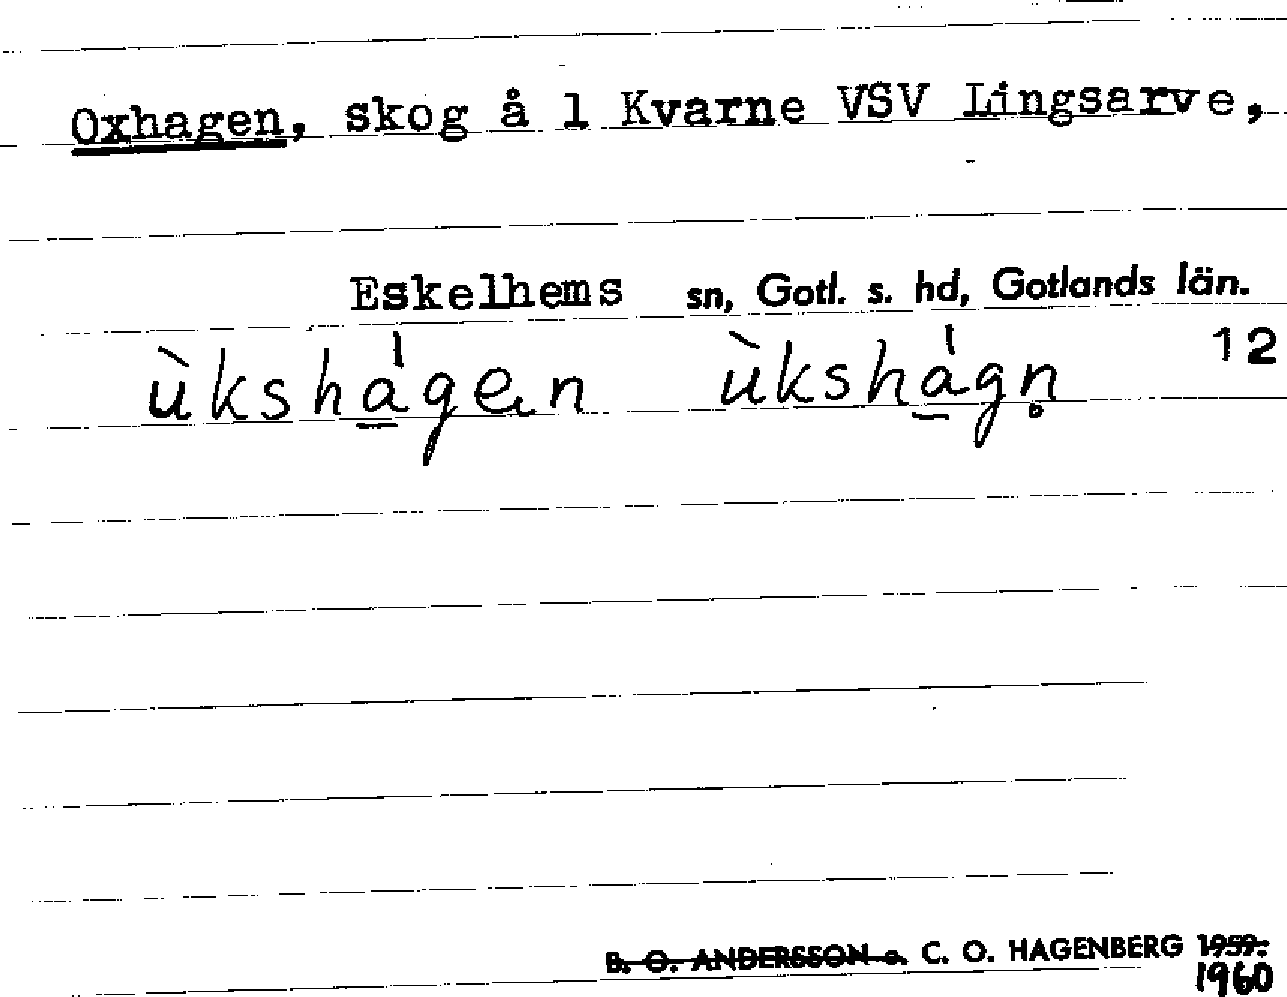 Oxhagen, skog å 1 Kvarne VSV Lingsarve,
Eskelhems sn, Gotl. s. hd, Gotlands län.
12
ùkshа̱̍gen ùksha̱̍gn̥
B. O. ANDERSSON o. C. O. HAGENBERG 1959.
1960